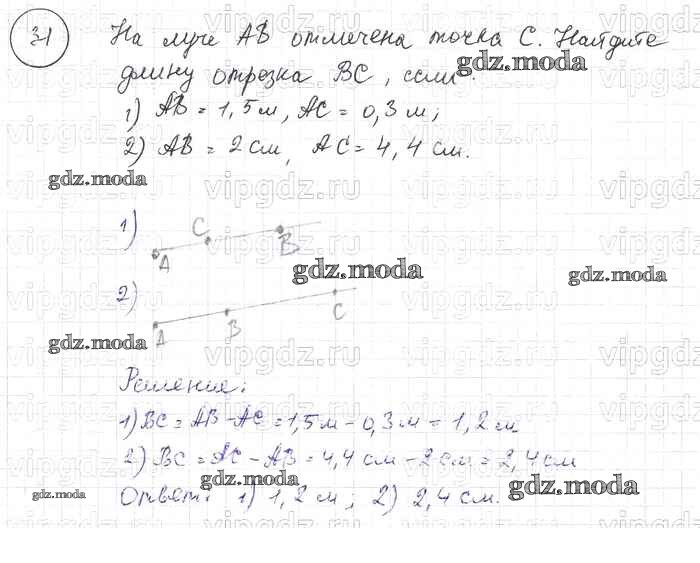 31
На луче AB отмечена точка C. Найдите
длину отрезка BC, если:
1) AB = 1,5 м, AC = 0,3 м;
2) AB = 2 см, AC = 4,4 см.
1)
A C B
2)
A B C
Решение:
1) BC = AB - AC = 1,5 м - 0,3 м = 1,2 м
2) BC = AC - AB = 4,4 см - 2 см = 2,4 см
Ответ: 1) 1,2 м; 2) 2,4 см.
gdz.moda
gdz.moda
gdz.moda
gdz.moda
gdz.moda
gdz.moda
gdz.moda
gdz.moda
vipgdz.ru